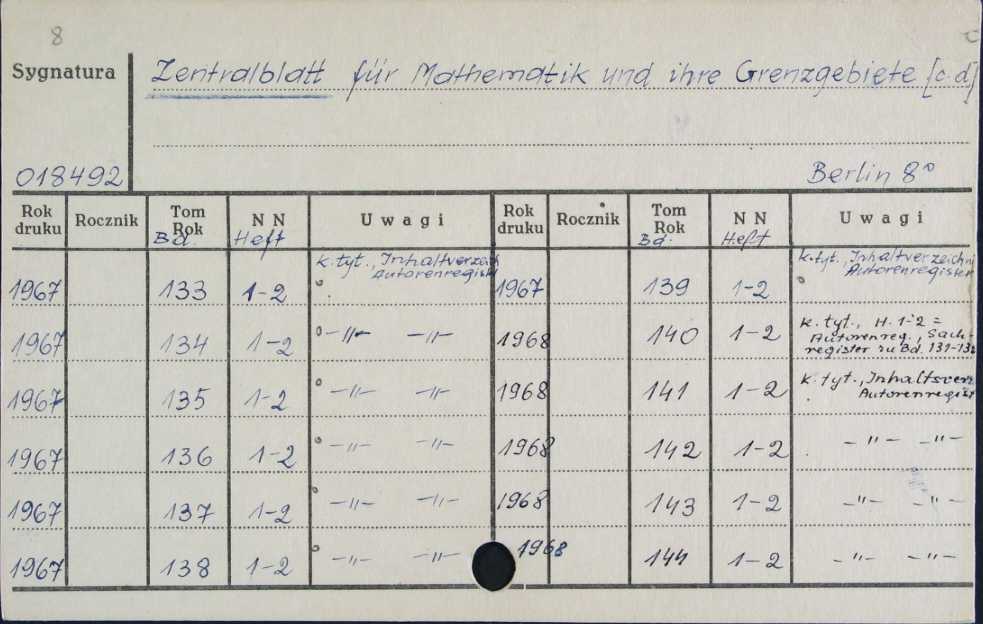 8
Sygnatura
Zentralblatt für Mathematik und ihre Grenzgebiete [c.d]
018492
Berlin 8°
Rok druku Rocznik Tom Rok Bd. N N Heft U w a g i Rok druku Rocznik Tom Rok Bd. N N Heft U w a g i
1967 133 1-2 k.tyt., Inhaltverzeich Autorenregist 1967 139 1-2 k.tyt., Inhaltverzeichni Autorenregister
1967 134 1-2 -"- -"- 1968 140 1-2 k. tyt., H. 1-2 = Autorenreg., Sach-register zu Bd. 131-13
1967 135 1-2 -"- -"- 1968 141 1-2 k. tyt., Inhaltsverz Autorenregist
1967 136 1-2 -"- -"- 1968 142 1-2 -"- -"-
1967 137 1-2 -"- -"- 1968 143 1-2 -"- -"-
1967 138 1-2 -"- -"- 1968 144 1-2 -"- -"-